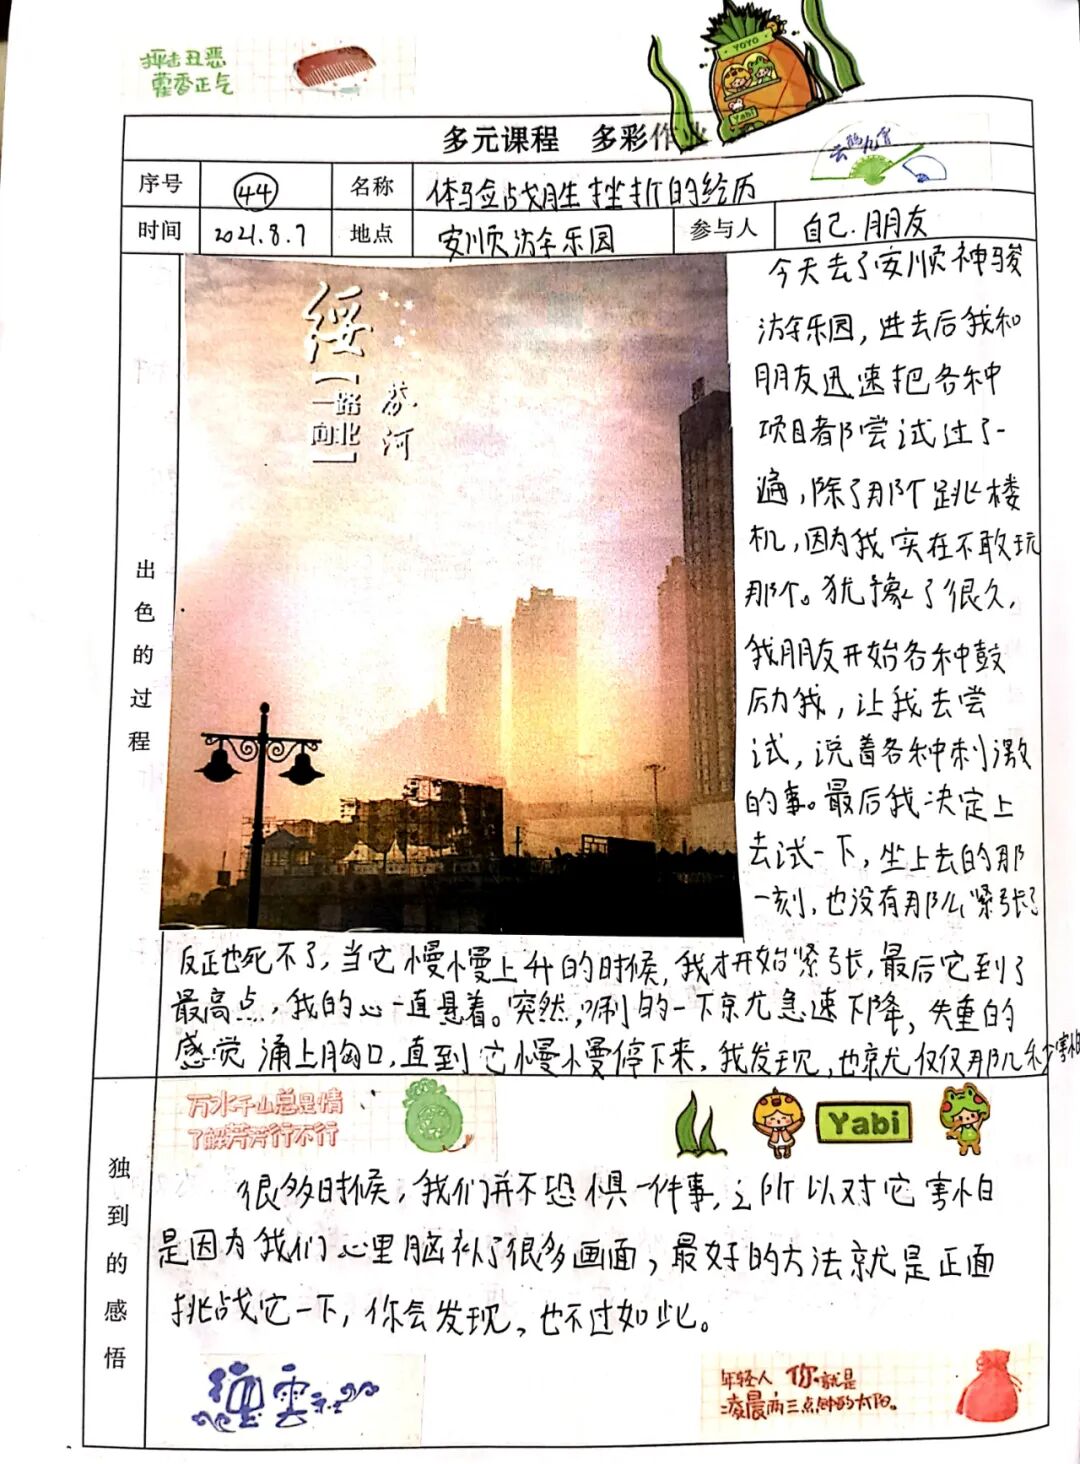 抨击丑恶
藿香正气
YOYO
Yabi
多元课程 多彩作业
云鹤九霄
序号 44 名称 体验战胜挫折的经历
时间 2021.8.7 地点 安顺游乐园 参与人 自己.朋友
绥
芬
河
【一路向北】
出色的过程
今天去了安顺神骏
游乐园，进去后我和
朋友迅速把各种
项目都尝试过了一
遍，除了那个跳楼
机，因为我实在不敢玩
那个。犹豫了很久，
我朋友开始各种鼓
励我，让我去尝
试，说着各种刺激
的事。最后我决定上
去试一下，坐上去的那
一刻，也没有那么紧张了
反正也死不了，当它慢慢上升的时候，我才开始紧张，最后它到了
最高点，我的心一直悬着。突然，唰的一下就急速下降，失重的
感觉涌上胸口，直到它慢慢停下来，我发现，也就仅仅那几秒害怕
万水千山总是情
了解芳芳行不行
Yabi
独到的感悟
很多时候，我们并不恐惧一件事，之所以对它害怕
是因为我们心里脑补了很多画面，最好的方法就是正面
挑战它一下，你会发现，也不过如此。
德雲社
年轻人 你就是
凌晨两三点钟的太阳。